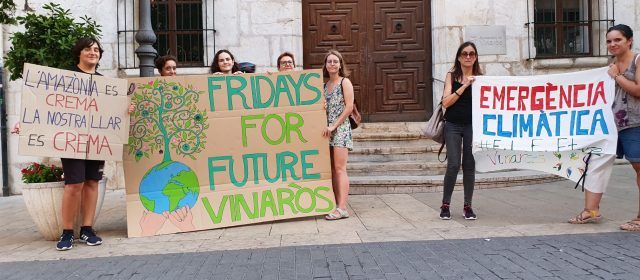 L'AMAZÒNIA ES
CREMA
LA NOSTRA LLAR
ES CREMA
FRIDAYS
FOR
FUTURE
VINARÒS
EMERGÈNCIA
CLIMÀTICA
Vinaròs